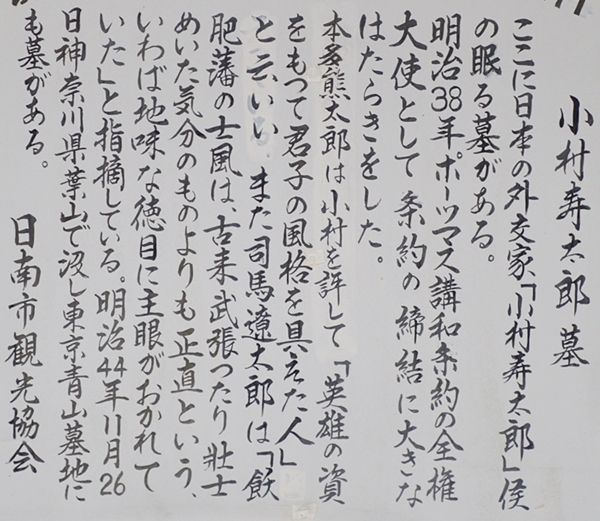 小村寿太郎墓
ここに日本の外交家「小村寿太郎」侯
の眠る墓がある。
明治38年ポーツマス講和条約の全権
大使として条約の締結に大きな
はたらきをした。
本多熊太郎は小村を評して「英雄の資
をもつて君子の風格を具えた人」
と云いい、また司馬遼太郎は「飫
肥藩の士風は、古来武張つたり壮士
めいた気分のものよりも正直という、
いわば地味な徳目に主眼がおかれて
いた」と指摘している。明治44年11月26
日神奈川県葉山で没し東京青山墓地に
も墓がある。
日南市観光協会